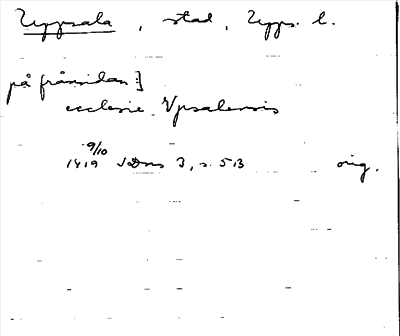 Uppsala, stad, Upps. l.
på frånsidan]
ecclesie Vpsalensis
9/10
1419 SDns 3, s. 513 orig.